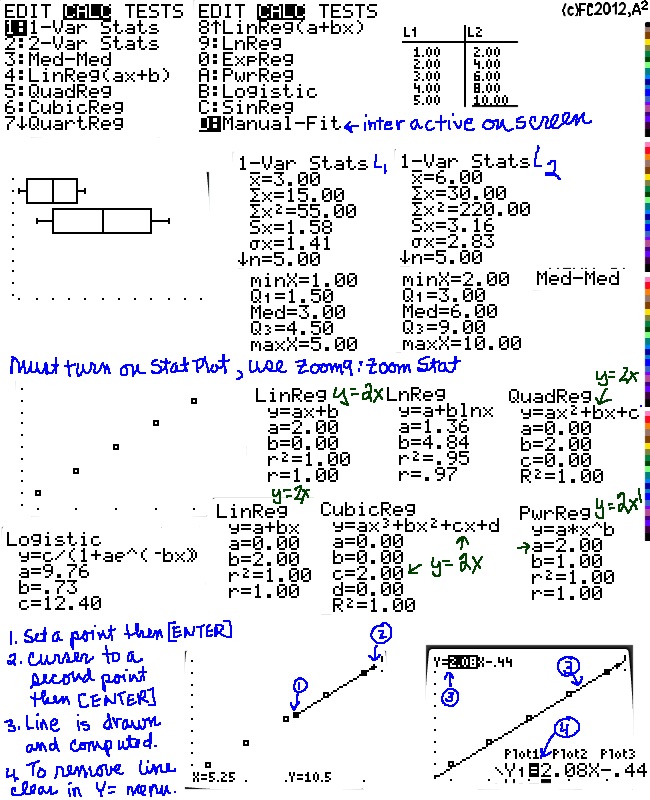 EDIT CALC TESTS
1:1-Var Stats
2:2-Var Stats
3:Med-Med
4:LinReg(ax+b)
5:QuadReg
6:CubicReg
7↓QuartReg
EDIT CALC TESTS
8↑LinReg(a+bx)
9:LnReg
0:ExpReg
A:PwrReg
B:Logistic
C:SinReg
D:Manual-Fit ← interactive on screen
(c)FC2012,A²
L1 L2
1.00 2.00
2.00 4.00
3.00 6.00
4.00 8.00
5.00 10.00
1-Var Stats L1
x̄=3.00
Σx=15.00
Σx²=55.00
Sx=1.58
σx=1.41
↓n=5.00
minX=1.00
Q1=1.50
Med=3.00
Q3=4.50
maxX=5.00
1-Var Stats L2
x̄=6.00
Σx=30.00
Σx²=220.00
Sx=3.16
σx=2.83
↓n=5.00
minX=2.00
Q1=3.00
Med=6.00
Q3=9.00
maxX=10.00
Med-Med
Must turn on Stat Plot, use Zoom9:Zoom Stat
LinReg y=2x
y=ax+b
a=2.00
b=0.00
r²=1.00
r=1.00
LnReg
y=a+blnx
a=1.36
b=4.84
r²=.95
r=.97
y=2x
QuadReg
y=ax²+bx+c
a=0.00
b=2.00
c=0.00
R²=1.00
Logistic
y=c/(1+ae^(-bx))
a=9.76
b=.73
c=12.40
y=2x
LinReg
y=a+bx
a=0.00
b=2.00
r²=1.00
r=1.00
CubicReg
y=ax³+bx²+cx+d
a=0.00
b=0.00
c=2.00 ← y=2x
d=0.00
R²=1.00
PwrReg y=2x¹
y=a*x^b
→a=2.00
b=1.00
r²=1.00
r=1.00
1. Set a point then [ENTER]
2. curser to a
second point
then [ENTER]
3. Line is drawn
and computed.
4. To remove line
clear in Y= menu.
1
2
X=5.25 Y=10.5
Y=2.08X-.44
3
3
4
Plot1 Plot2 Plot3
\Y1=2.08X-.44